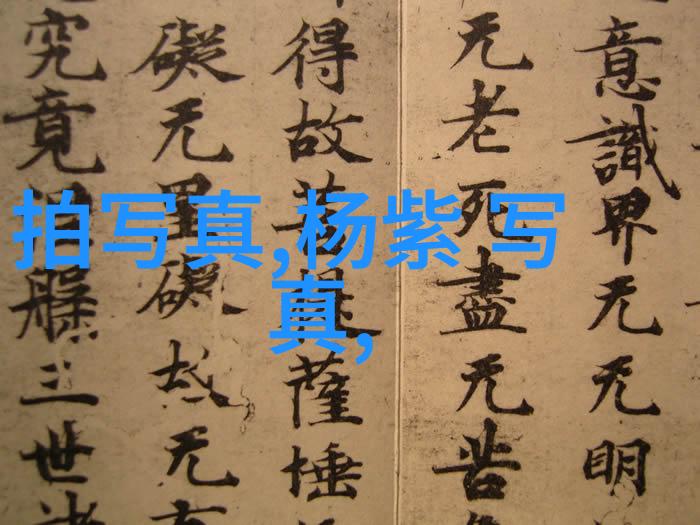 拍写真,杨紫 写
真,
意識界无无明
无老死盡无苦
得故菩提薩埵
礙无罣礙故无有
究竟涅槃三世諸